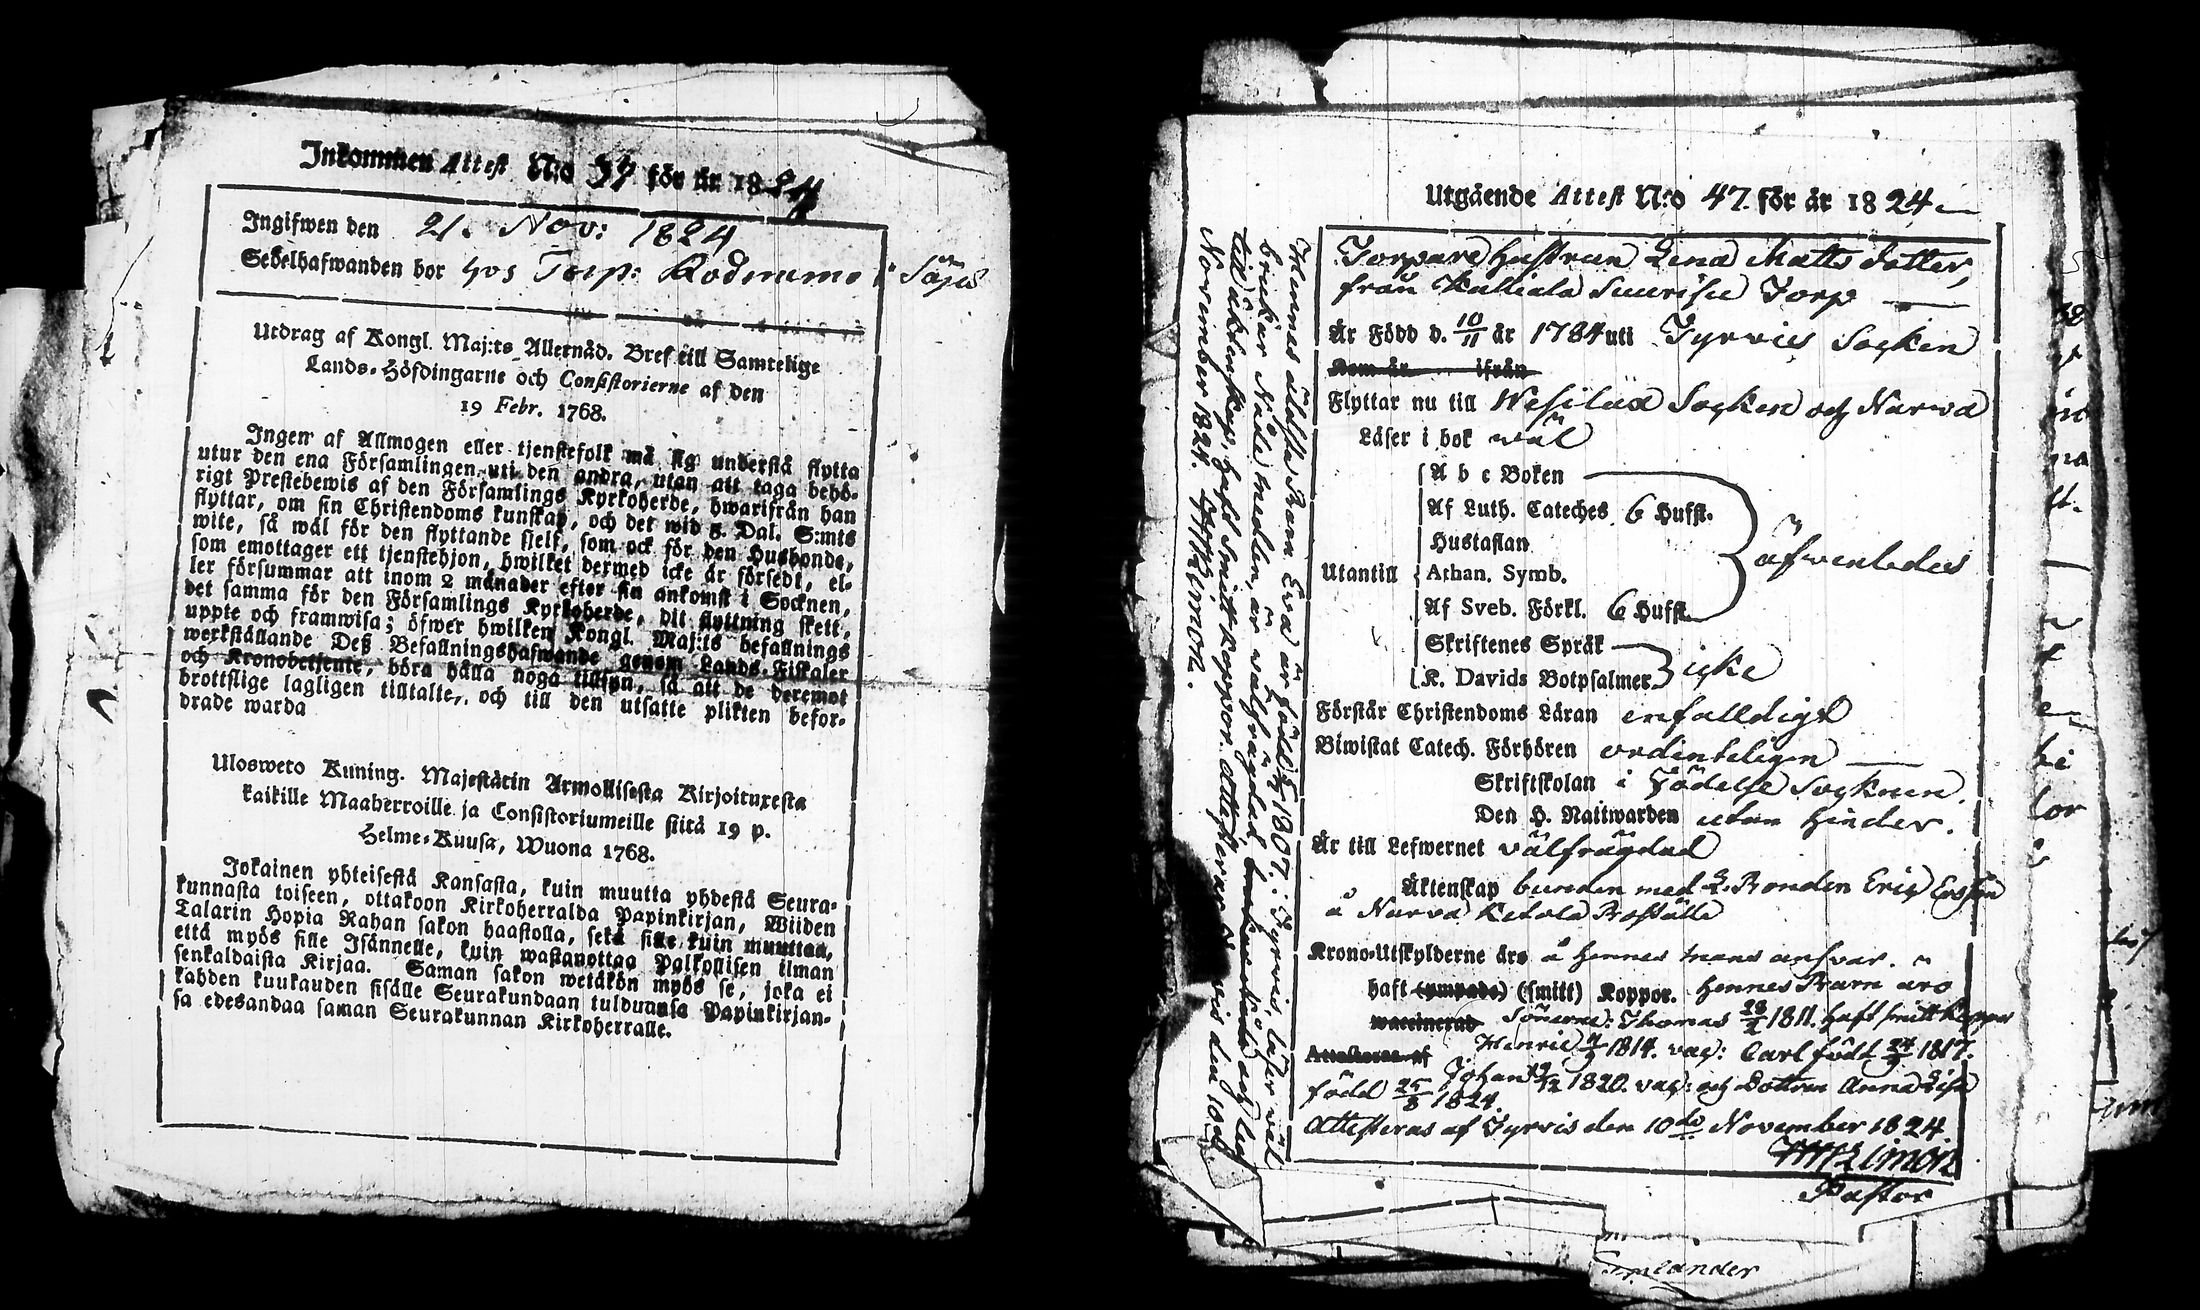 Inkommen Attest N:o 34 för år 1824
Ingifwen den 21. Nov: 1824
Sedelhafwanden bor hos Torp: Rodnumo i Säjis
Utdrag af Kongl. Maj:ts Allernåd. Bref till Samtelige
Lands-Höfdingarne och Consistorierne af den
19 Febr. 1768.
Ingen af Allmogen eller tjenstefolk må sig understå flytta
utur den ena Församlingen uti den andra, utan att taga behö-
rigt Prestebewis af den Församlings Kyrkoherde, hwarifrån han
flyttar, om sin Christendoms kunskap, och det wid 5. Dal. S:mts
wite, så wäl för den flyttande sielf, som ock för den Husbonde,
som emottager ett tjenstehjon, hwilket dermed icke är försedt, el-
ler försummar att inom 2 månader efter sin ankomst i Socknen,
det samma för den Församlings Kyrkoherde, dit flyttning skett,
uppte och framwisa; öfwer hwilken Kongl. Maj:ts befallnings
werkställande Deß Befallningshafwande genom Lands-Fiskaler
och Kronobetjente, böra hålla noga tillsyn, så att de deremot
brottslige lagligen tilltalte, och till den utsatte plikten befor-
drade warda
Ulosweto Kuning. Majestätin Armollisesta Kirjoituxesta
kaikille Maaherroille ja Consistoriumeille siitä 19 p.
Helme-Kuusa, Wuona 1768.
Jokainen yhteisestä Kansasta, kuin muutta yhdestä Seura-
kunnasta toiseen, ottakoon Kirkoherralda Papinkirjan, Wiiden
Talarin Hopia Rahan sakon haastolla, sekä sille kuin muuttaa,
että myös sille Isännelle, kuin wastanottaa Palkollisen ilman
senkaldaista Kirjaa. Saman sakon wetäkön myös se, joka ei
kahden kuukauden sisälle Seurakundaan tulduansa Papinkirjan-
sa edesandaa saman Seurakunnan Kirkoherralle.
Utgående Attest N:o 47. för år 1824
Torpare hustrun Lena Matts dotter,
från Kaliala Suurisuu Torp
Är Född d. 10/11 år 1784 uti Tyrvis Socken
Kom år ifrån
Flyttar nu till Wesilax Socken och Narwa
Läser i bok wäl
A b c Boken
Af Luth. Cateches 6 Hufst.
Hustaflan
Utantill Athan. Symb. äfwenledes
Af Sveb. Förkl. 6 Hufst.
Skriftenes Språk
K. Davids Botpsalmer icke
Förstår Christendoms Läran enfalldigt
Biwistat Catech. Förhören ordenteligen
Skriftskolan i Födelse Socknen.
Den H. Nattwarden utan hinder.
Är till Lefwernet välfrägdad
Äktenskap bunden med Bonden Eric Ersson
å Narva Ketola Rusthålle
Krono-Utskylderne äro å hennes mans answar.
haft (ympade) (smitt) Koppor. hennes Barn äro
waccinerad Sönerne: Thomas 28/2 1811. haft smitt koppor
Attesteras af Henric 4/7 1814. vac: Carl född 24/2 1817.
Johan 19/12 1820. vac: och Dottren Anna Lisa
född 25/8 1824.
Attesteras af Tyrvis den 10de November 1824
Simon
Pastor
Hennes äldsta Barn Eva är född 1807. i Tyrvis, läser wäl
brukar Nådemedlen, är välfrägdad och ledig
till äktenskap, haft smitt koppor. Attesterar Tyrvis den 10de
November 1824. Simon.